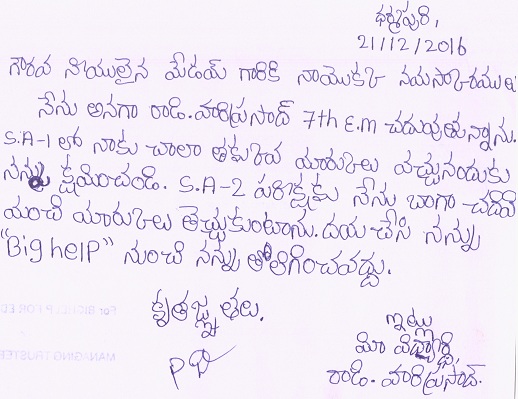 ధర్మపురి,
21/12/2016
గౌరవ నీయులైన మేడమ్ గారికి నాయొక్క నమస్కారములు
నేను అనగా రాడి. హరిప్రసాద్ 7th E.M చదువుతున్నాను.
S.A-1 లో నాకు చాలా తక్కువ మార్కులు వచ్చినందుకు
నన్ను క్షమించండి. S.A-2 పరీక్షకు నేను బాగా చదివి
మంచి మార్కులు తెచ్చుకుంటాను. దయచేసి నన్ను
"Big help" నుంచి నన్ను తొలిగించవద్దు.
కృతజ్ఞతలు.
ఇట్లు
మీ విద్యార్థి,
రాడి. హరిప్రసాద్.
For BIGHELP FOR ED
MANAGING TRUSTEE